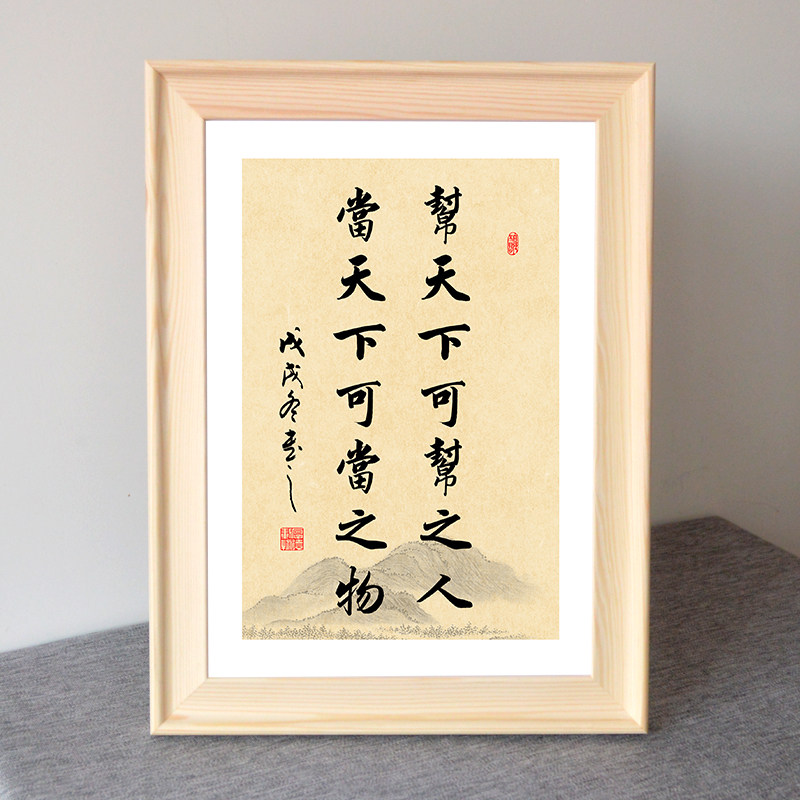 幫天下可幫之人
當天下可當之物
戊戌冬書之